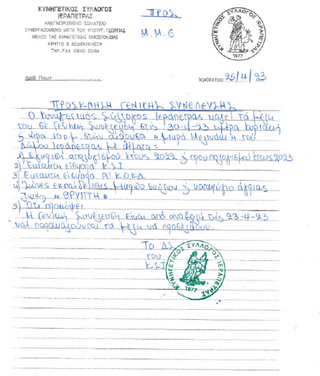 ΚΥΝΗΓΕΤΙΚΟΣ ΣΥΛΛΟΓΟΣ
ΙΕΡΑΠΕΤΡΑΣ
ΑΝΑΓΝΩΡΙΣΜΕΝΟ ΣΩΜΑΤΕΙΟ
ΣΥΝΕΡΓΑΖΟΜΕΝΟ ΜΕΤΑ ΤΟΥ ΥΠΟΥΡΓ. ΓΕΩΡΓΙΑΣ
ΜΕΛΟΣ ΤΗΣ ΚΥΝΗΓΕΤΙΚΗΣ ΟΜΟΣΠΟΝΔΙΑΣ
ΚΡΗΤΗΣ & ΔΩΔΕΚΑΝΗΣΟΥ
ΠΡΟΣ
Μ.Μ.Ε
ΚΥΝΗΓΕΤΙΚΟΣ ΣΥΛΛΟΓΟΣ ΙΕΡΑΠΕΤΡΑΣ
1977
Αριθ. Πρωτ.
Ιεράπετρα 25/4/23
ΠΡΟΣΚΛΗΣΗ ΓΕΝΙΚΗΣ ΣΥΝΕΛΕΥΣΗΣ
Ο Κυνηγετικός Σύλλογος Ιεράπετρας καλεί τα μέλη
του σε Γενική Συνέλευση στις 30-4-23 ημέρα Κυριακή
ώρα 10π.μ. στην αίθουσα «Μελίνα του
Δήμου Ιεράπετρας με θέματα:
1) απολογισμού έτους 2022 προϋπολογισμού έτους 2023
2) Έκτακτη εισφορά Κ.Σ.Ι
3) Έκτακτη εισφορά Α' Κ.Ο.Κ.Δ
4) Ζώνες εκπαίδευσης σκύλων καταφύγιο άγριας
ζωής «ΘΡΥΠΤΗ»
5) Ότι προκύψει
Η Γενική Συνέλευση είναι από αναβολή στις 23-4-23
και παρακαλούνται τα μέλη να προσέλθουν.
Το ΔΣ
του
Κ.Σ.Ι
ΚΥΝΗΓΕΤΙΚΟΣ ΣΥΛΛΟΓΟΣ ΙΕΡΑΠΕΤΡΑΣ
1977